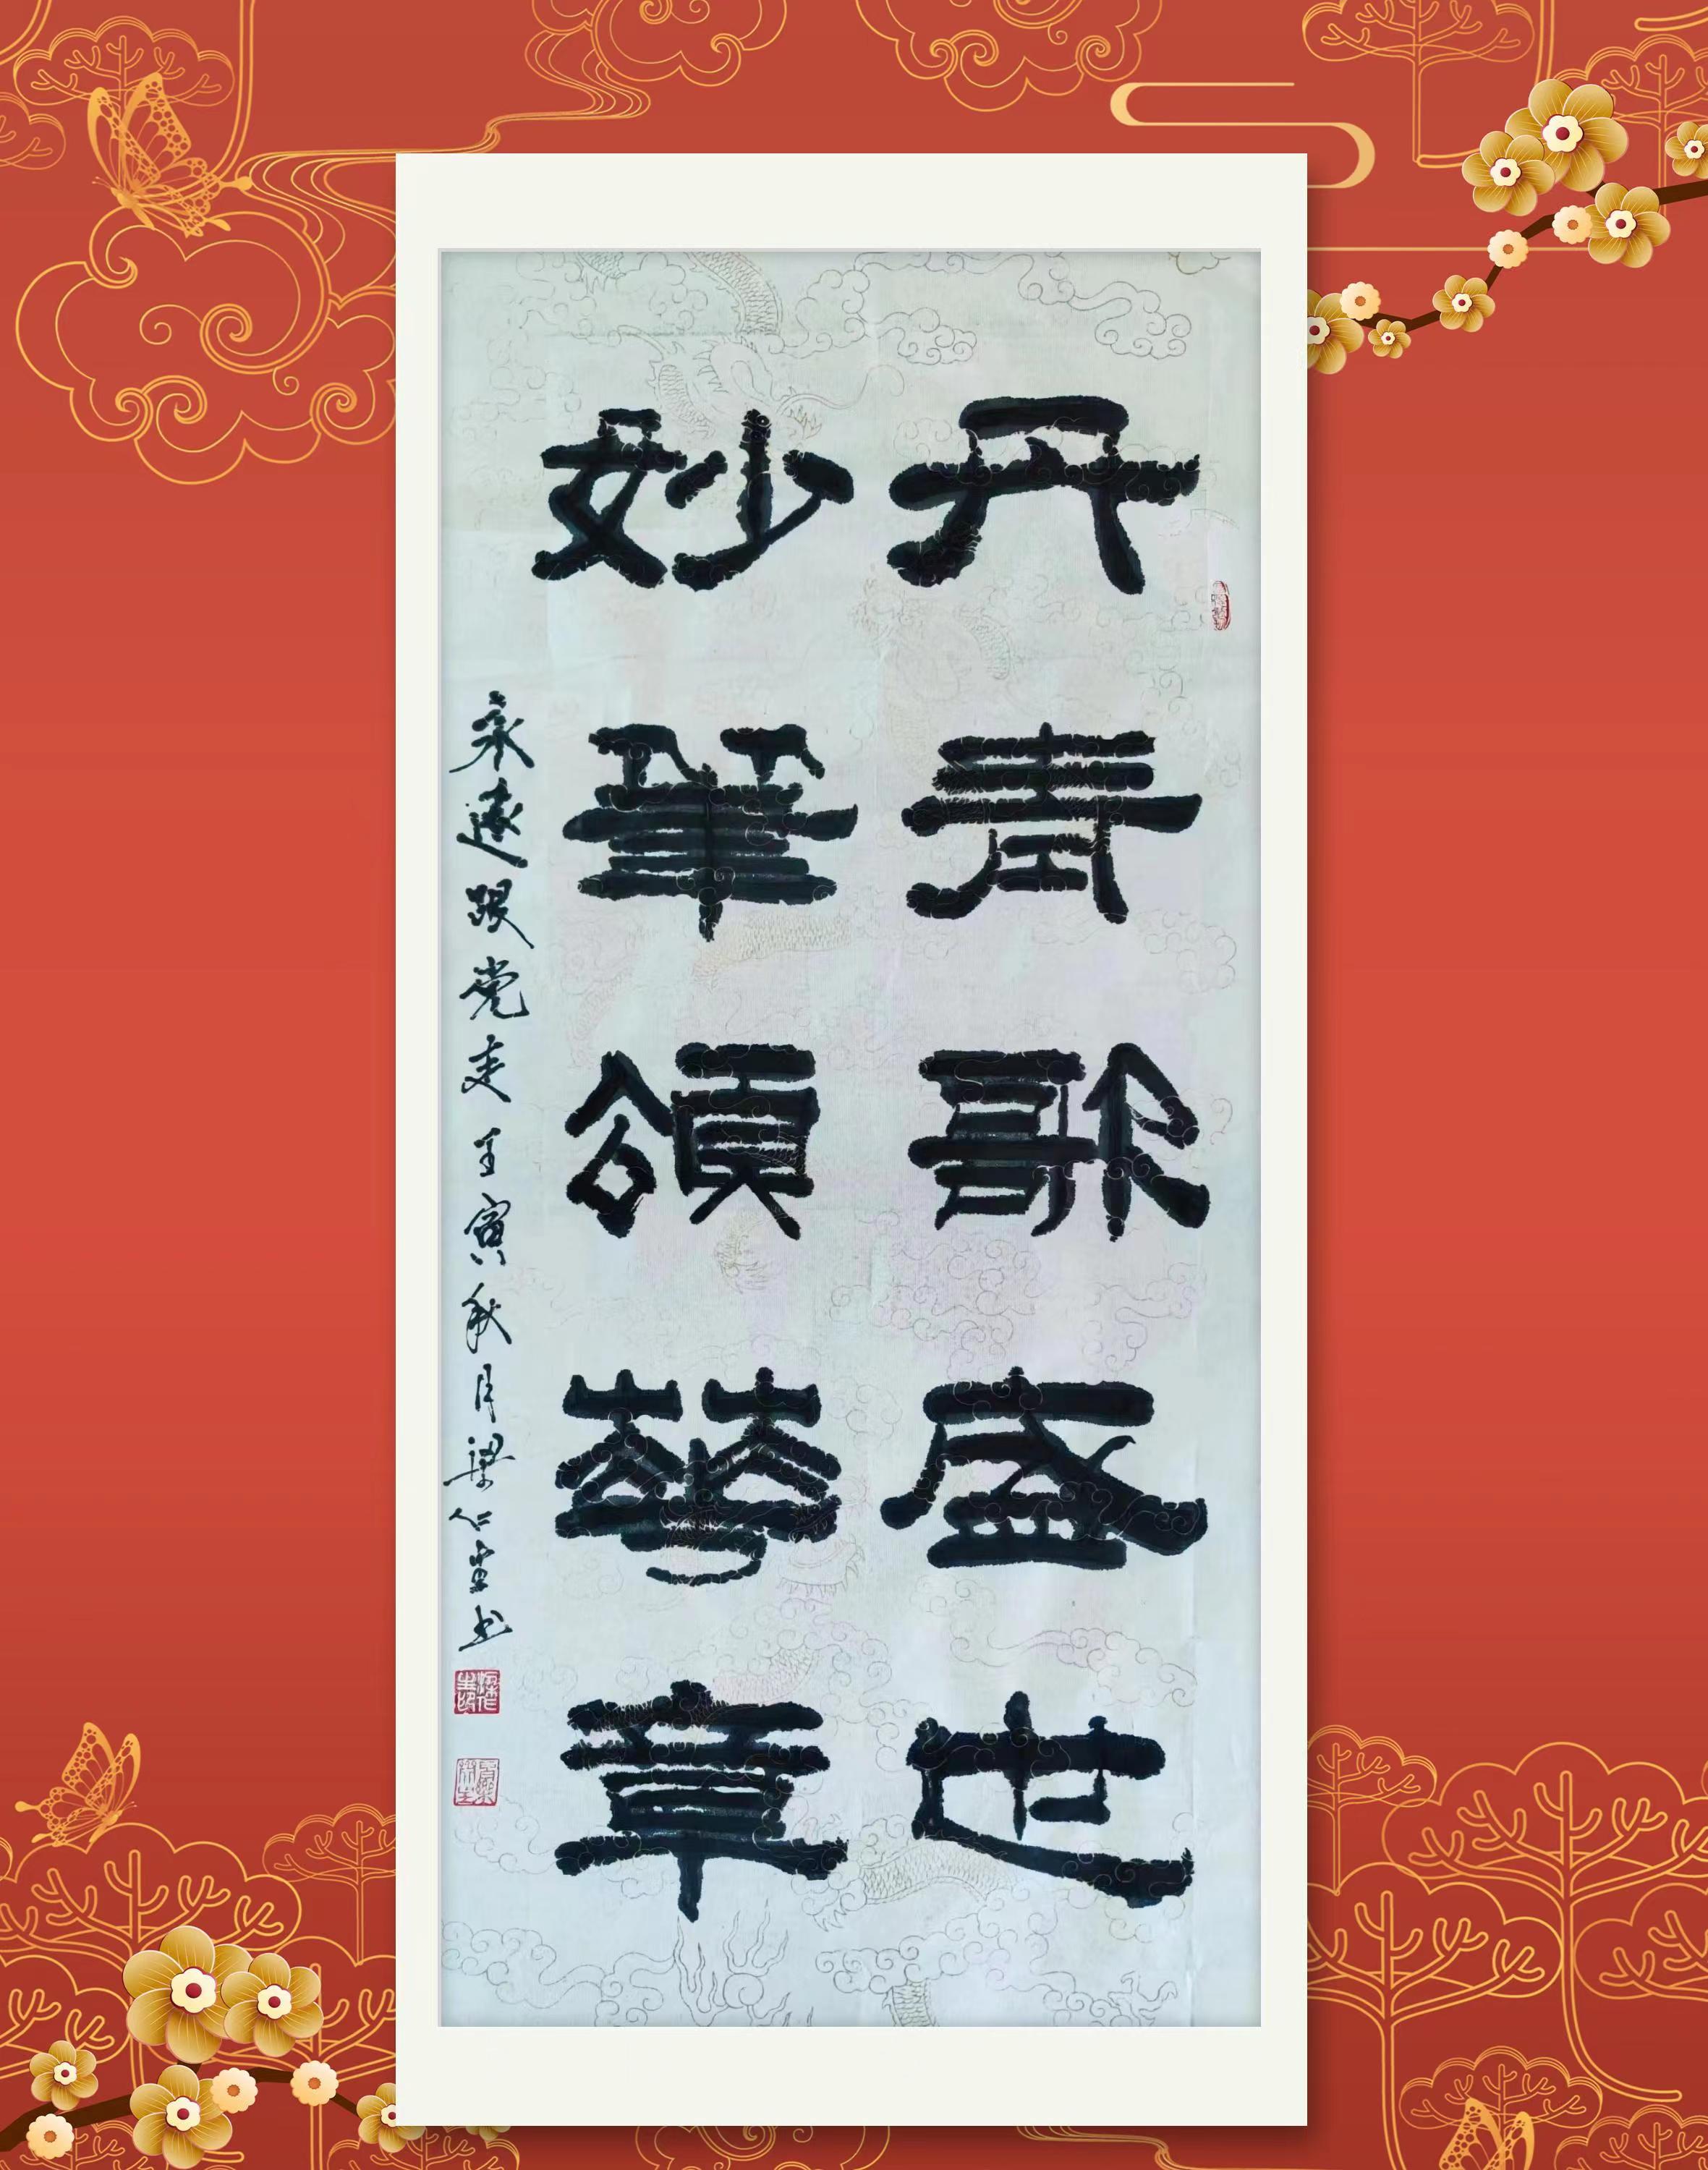 丹青歌盛世
妙筆頌華章
永遠跟党走 壬寅秋月梁仁书